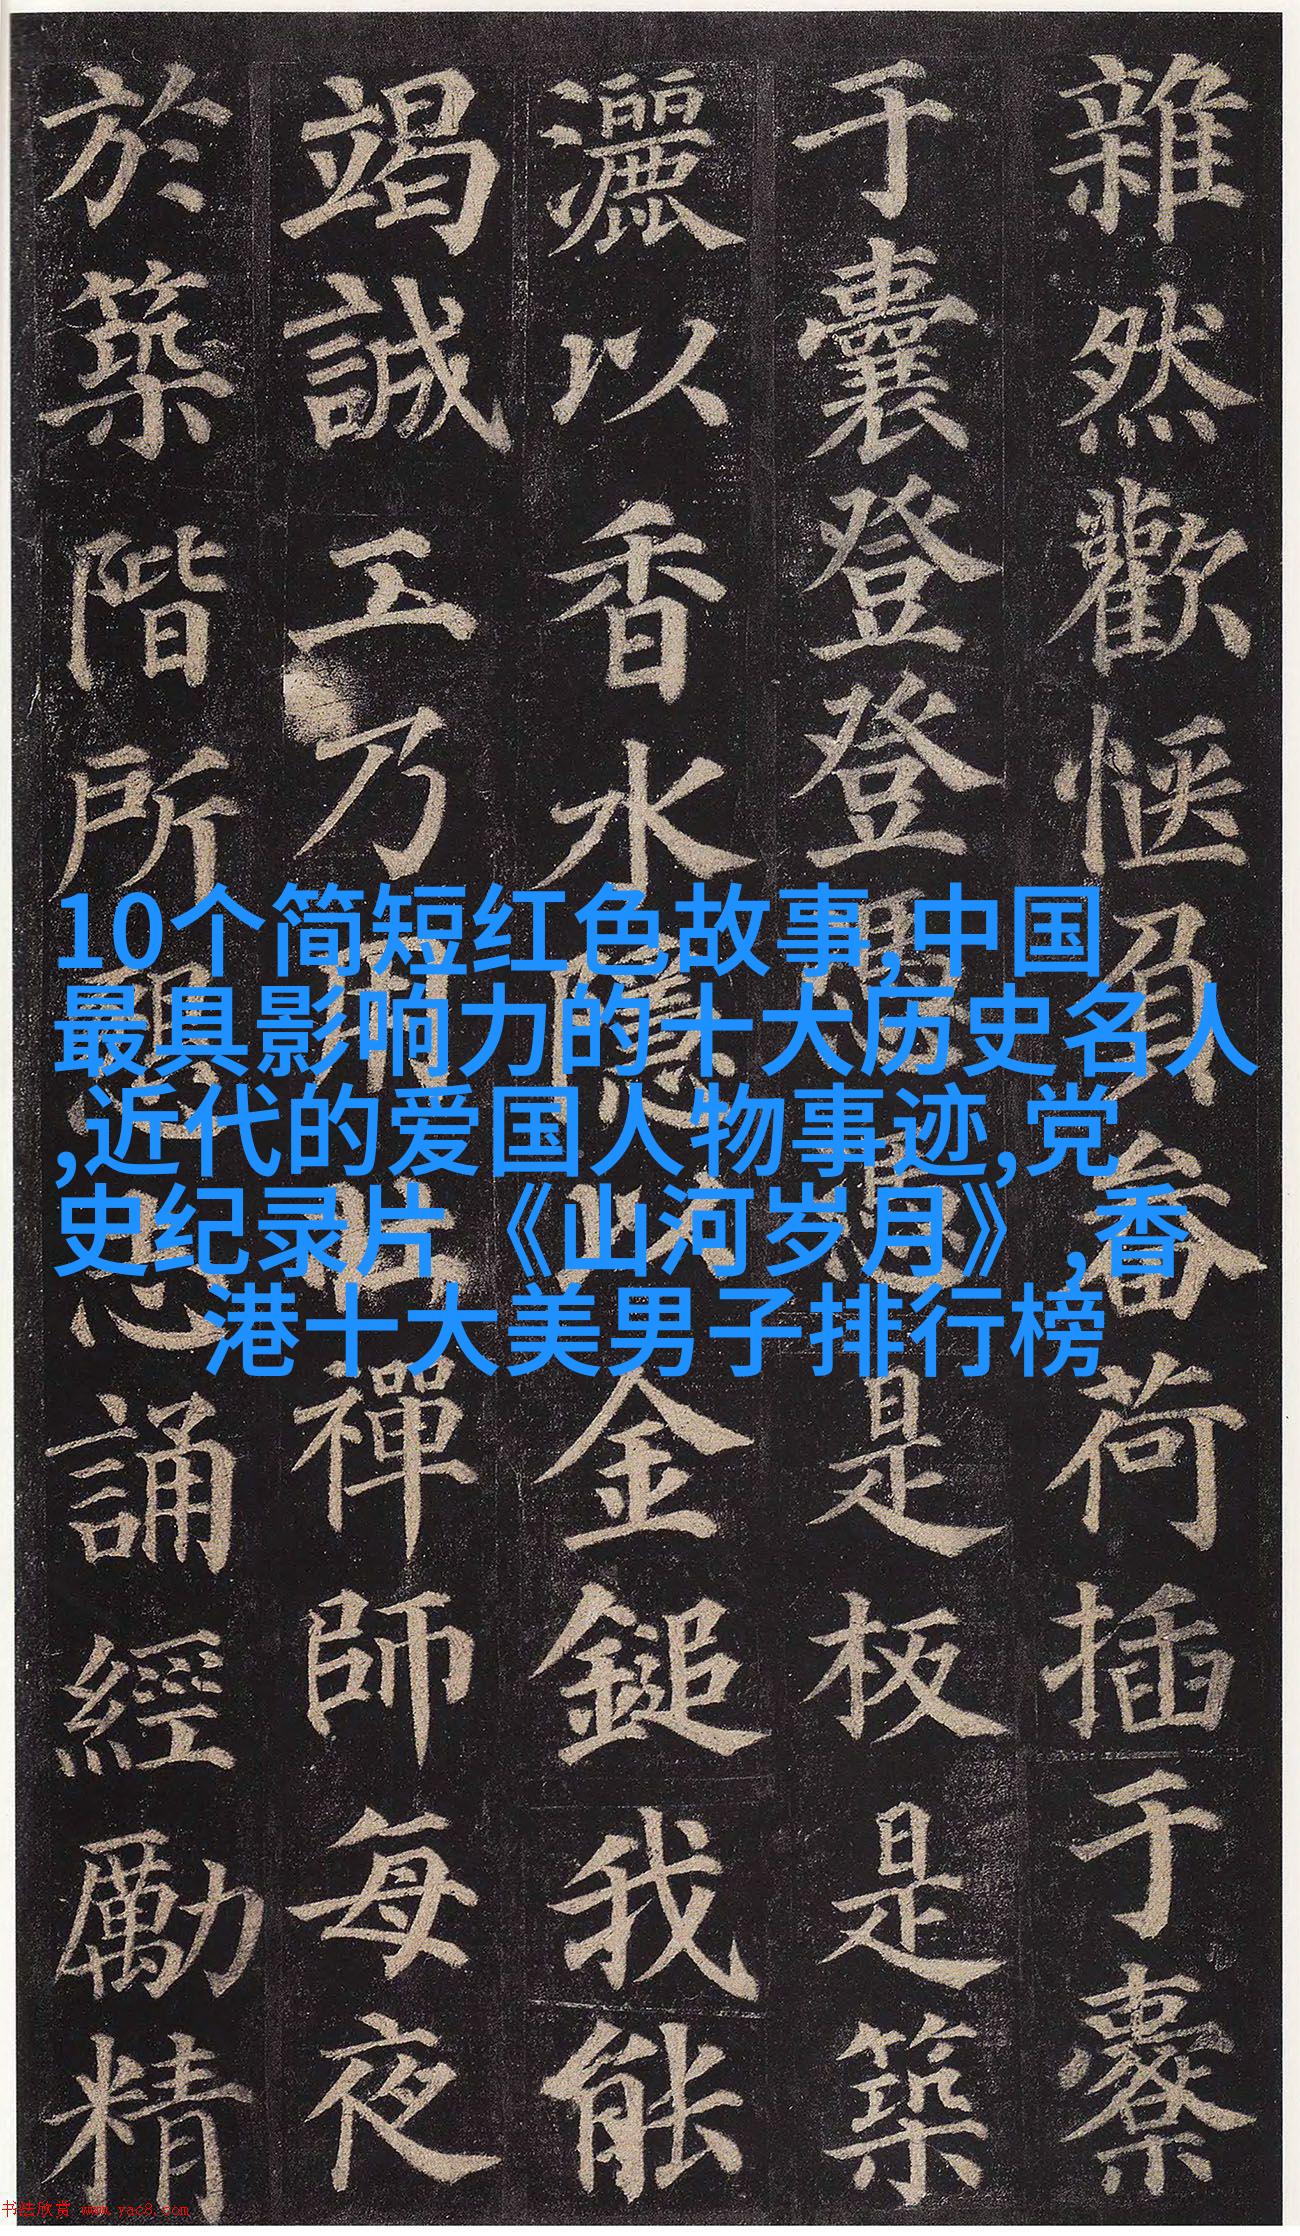 雜然歡愜負畚荷插于橐
于囊登登憑憑是板是築
灑以香水隱以金鎚我能
竭誠工乃用壯禪師每夜
於築階所懇志誦經勵精
10个简短红色故事,中国
最具影响力的十大历史名人
,近代的爱国人物事迹,党
史纪录片《山河岁月》,香
港十大美男子排行榜
书法欣赏 www.yac8.com